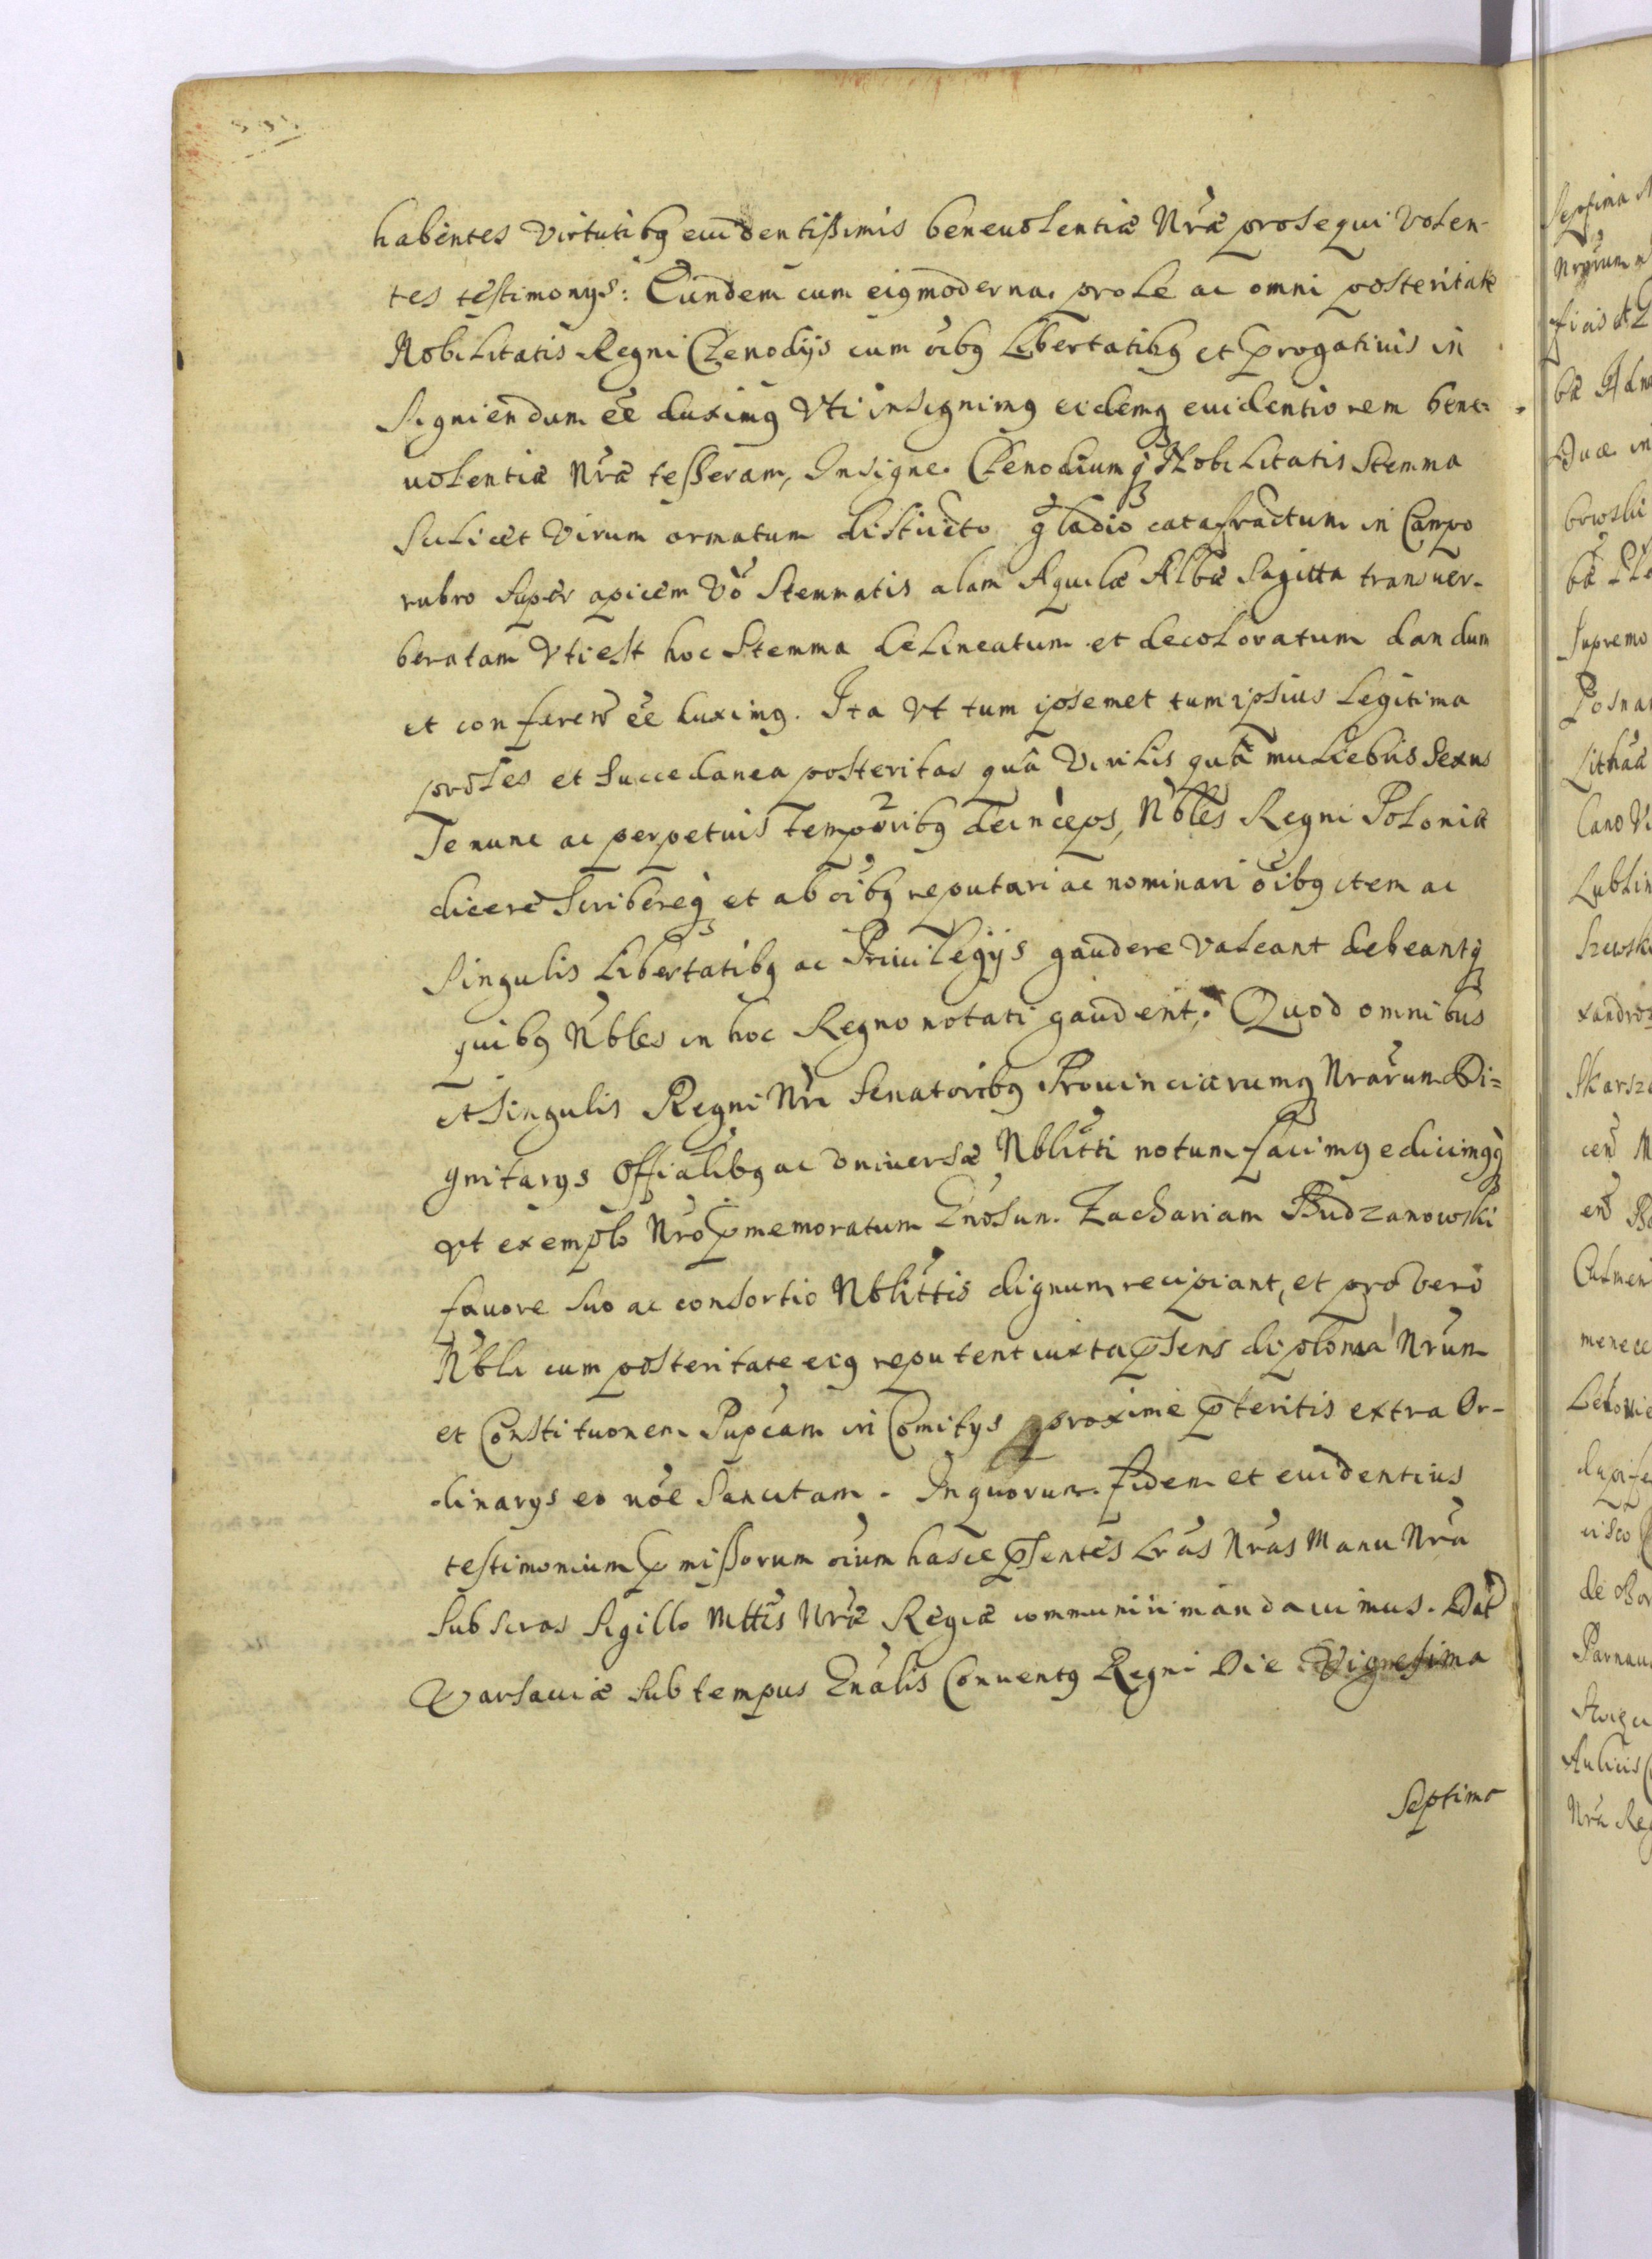 habentes Virtutibꝫ euidentißimis beneuolentiæ Nr̃æ prosequi Volen-
tes testimonys: Eundem cum eiꝯ moderna prole ac omni posteritate
Nobilitatis Regni Clenodijs cum oĩbꝫ Libertatibꝫ et p̃rogatiuis in
signiendum eẽ duximꝯ Vti insignimꝯ eidemꝫ euidentiorem bene-
uolentiæ Nr̃æ teßeram, Insigne Clenodiumqꝫ Nobilitatis Stemma
Scilicet Virum armatum districto gladio catafractum in Campo
rubro super apicem Vo Stemmatis alam Aquilæ Albæ Sagitta transuer-
beratam Vti est hoc Stemma delineatum et decoloratum dandum
et conferend eẽ duximꝯ. Ita Vt tum ipsemet tum ipsius Legitima
proles et Succedanea posteritas quà Virilis quà muliebris Sexus
Ie nunc ac perpetuis Temporibꝫ deinceps, Nb̃les Regni Poloniæ
dicere Scribereqꝫ et ab oĩbꝫ reputari ac nominari oĩbꝫ item ac
Singulis Libertatibꝫ ac Priuilegijs gaudere Valeant debeantqꝫ
quibꝫ Nb̃les in hoc Regno notati gaudent. Quod omnibus
et Singulis Regni Nr̃i Senatoribꝫ Prouinciarumqꝫ Nr̃arum Di=
gnitarys Officialibꝫ ac Vniuersæ Nblitti notum facimꝯ edicimꝯqꝫ
Vt exemplo Nr̃o p̃memoratum Gnosum Zachariam Budzanowski
fauore suo ac consortio Nblittis dignum recipiant, et pro vero
Nb̃li cum posteritate eiꝯ reputent iuxta p̃sens diploma Nr̃um
et Constituonem Pup̃cam in Comitys proxime p̃teritis extra Or-
dinarys eo nõe Sancitam. In quorum fidem et euidentius
testimonium p̃mißorum oĩum hasce p̃sentes Lr̃as Nr̃as Manu Nr̃a
Subscras Sigillo Mttis Nr̃æ Regiæ communiri mandauimus. Dat
Varsauiæ sub tempus Gnãlis Conuentꝯ Regni Die Vigesima
Septima